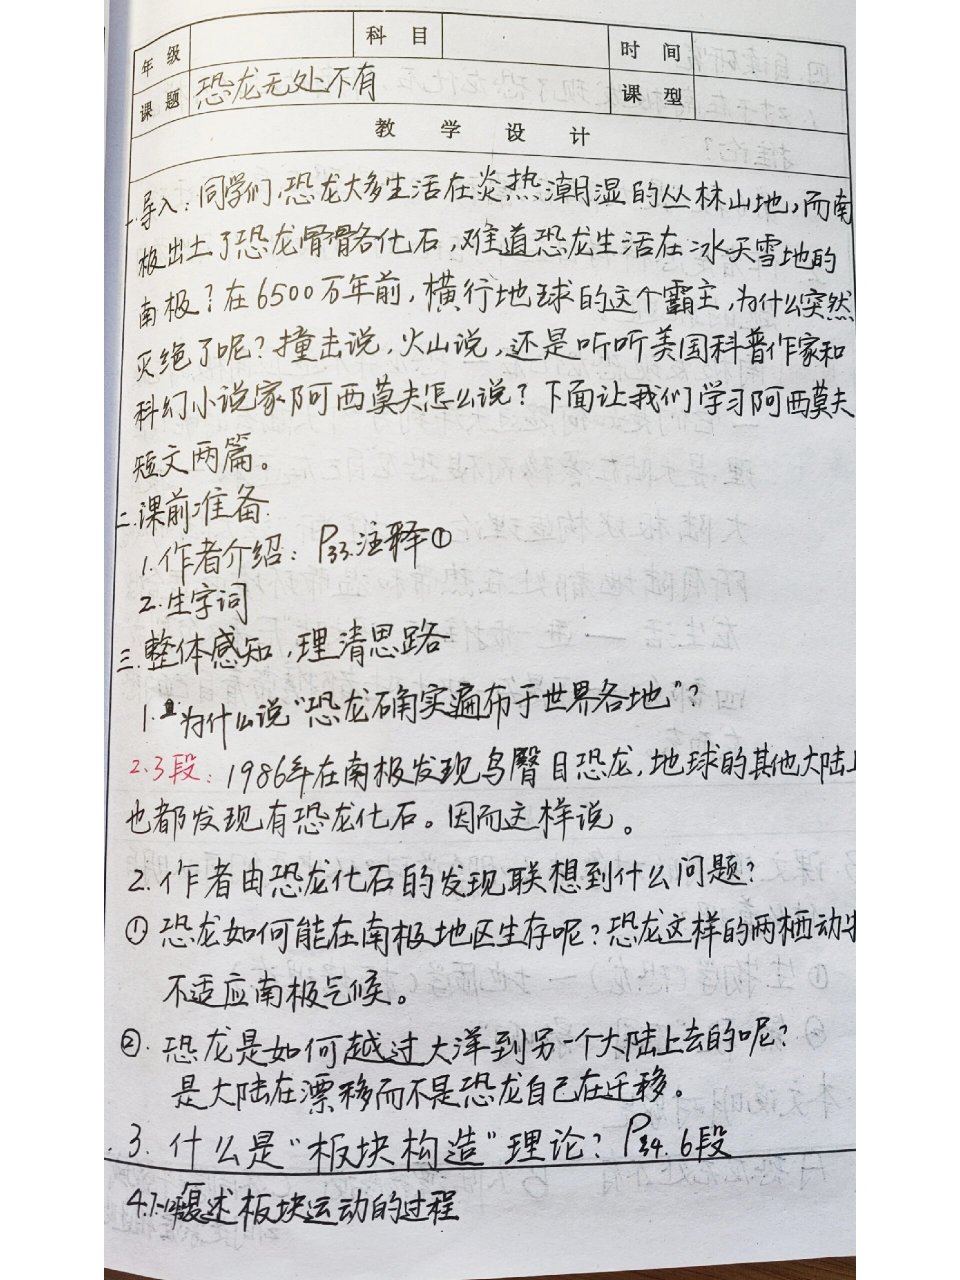 年级 科目 时间
课题 恐龙无处不有 课型
教学设计
一.导入：同学们，恐龙大多生活在炎热潮湿的丛林山地，而南
极出土了恐龙骨骼化石，难道恐龙生活在冰天雪地的
南极？在6500万年前，横行地球的这个霸主，为什么突然
灭绝了呢？撞击说，火山说，还是听听美国科普作家和
科幻小说家阿西莫夫怎么说？下面让我们学习阿西莫夫
短文两篇。
二.课前准备
1.作者介绍：P33.注释①
2.生字词
三.整体感知，理清思路
1.为什么说“恐龙确实遍布于世界各地”？
2.3段：1986年在南极发现鸟臀目恐龙，地球的其他大陆上
也都发现有恐龙化石。因而这样说。
2.作者由恐龙化石的发现联想到什么问题？
①恐龙如何能在南极地区生存呢？恐龙这样的两栖动物
不适应南极气候。
②.恐龙是如何越过大洋到另一个大陆上去的呢？
是大陆在漂移而不是恐龙自己在迁移。
3.什么是“板块构造”理论？P34.6段
4.复述板块运动的过程